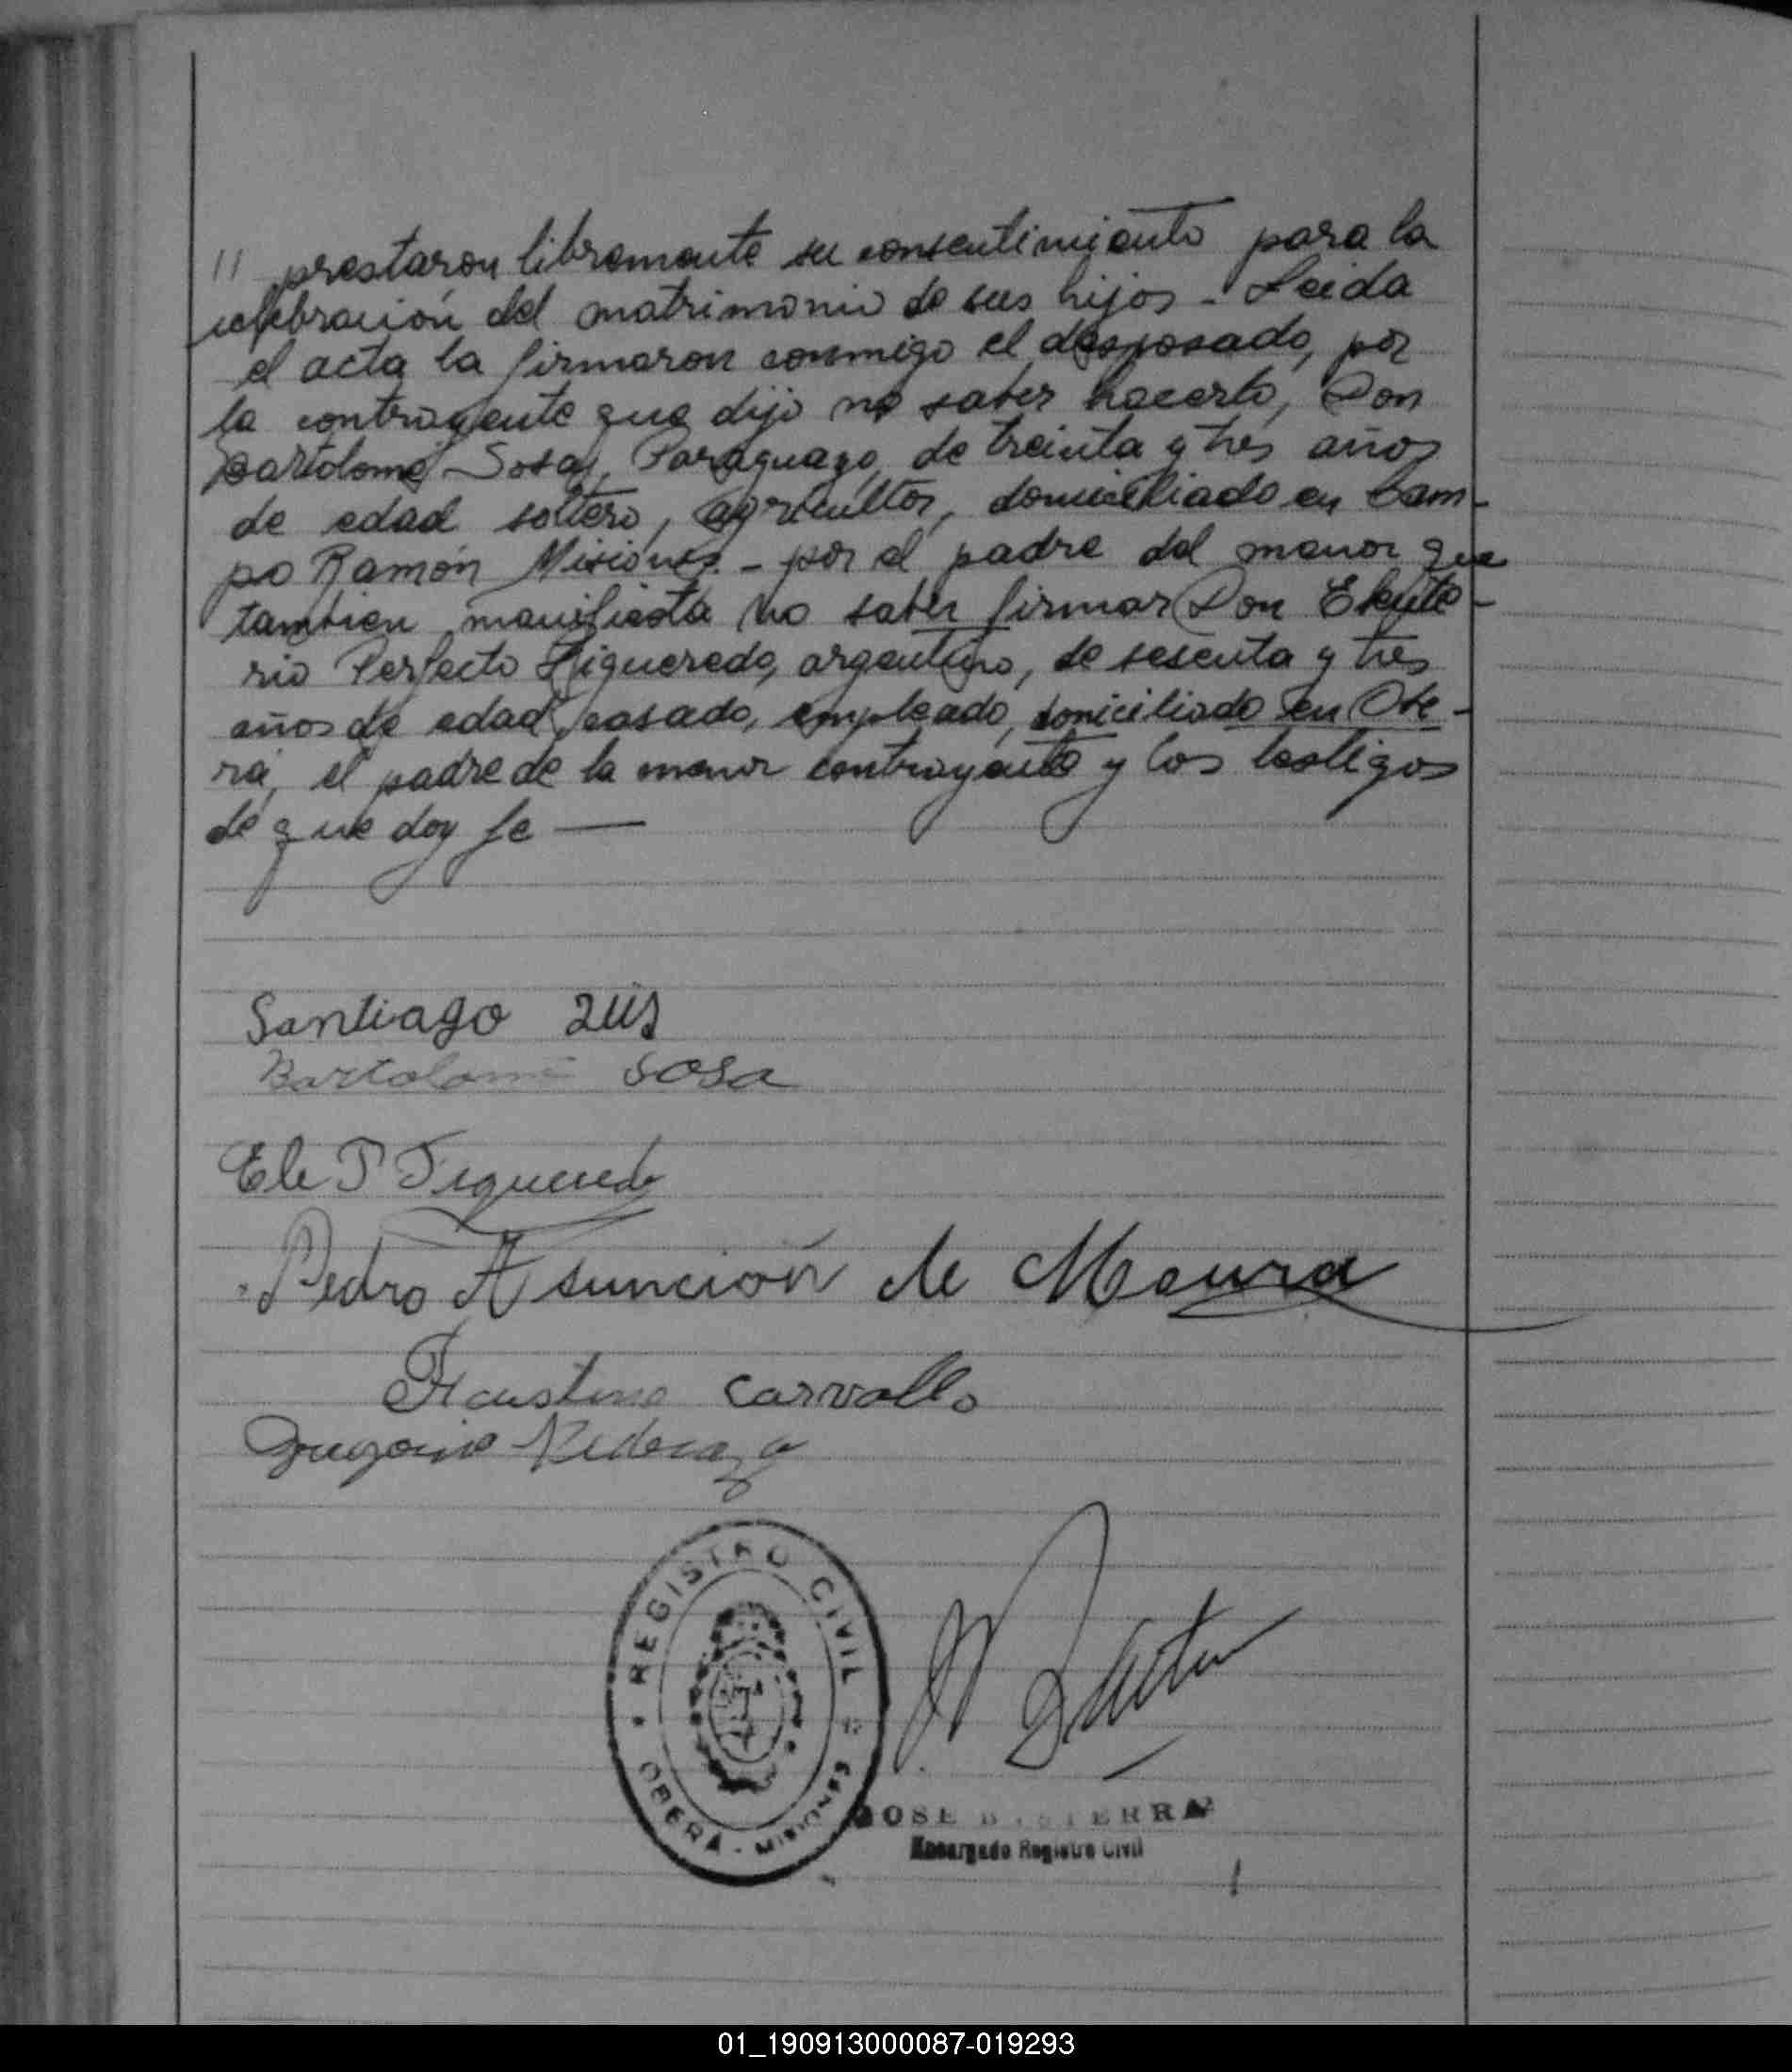 11 prestaron libremente su consentimiento para la
celebración del matrimonio de sus hijos - Leida
el acta la firmaron conmigo el desposado, por
la contrayente que dijo no saber hacerlo, Don
Bartolomé Sosa, Paraguayo, de treinta y tres años
de edad soltero, agricultor, domiciliado en Cam-
po Ramón Misiones. - por el padre del menor que
tambien manifiesta no saber firmar Don Eleute-
rio Perfecto Figueredo, argentino, de sesenta y tres
años de edad, casado, empleado, domiciliado en Obe-
rá, el padre de la menor contrayente y los testigos
de que doy fe —
Santiago
Bartolomé Sosa
Ele P Figueredo
Pedro Asunción de Moura
Faustino Carvallo
Gregorio
REGISTRO CIVIL
OBERÁ - MISIONES
JOSE
Encargado Registro Civil
01_190913000087-019293